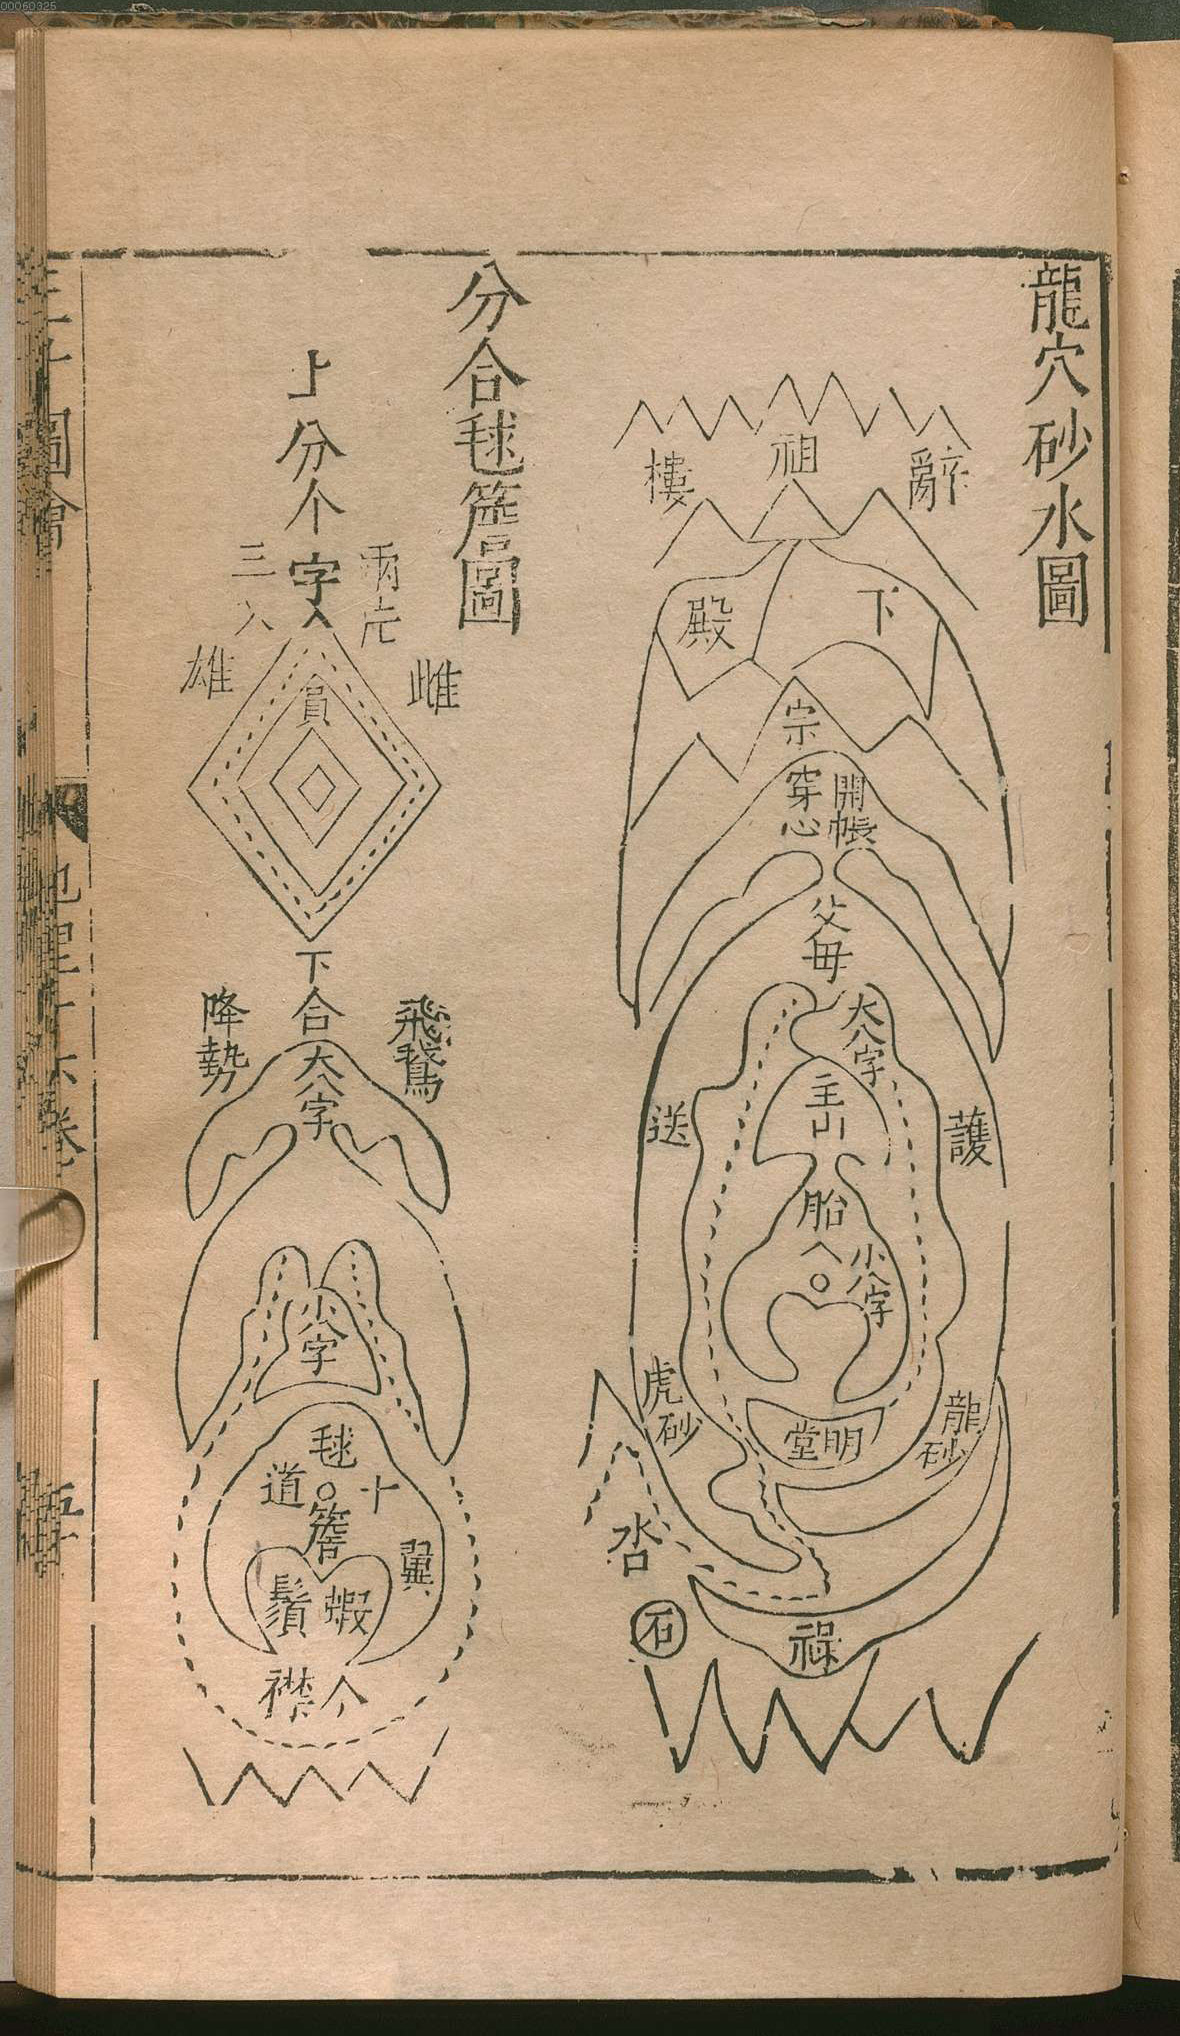 00060325
龍穴砂水圖
祖
樓
辭
殿
下
宗
開帳
穿心
父母
大八字
主山
送
護
胎
小八字
虎砂
龍砂
明堂
水口
石
祿
分合毬簷圖
上分个字
三
雌
雄
員
下合
飛鵞
降勢
大八字
小八字
毬
十道
簷
翼
蝦鬚
个襟
三才圖會
地理十六卷
五